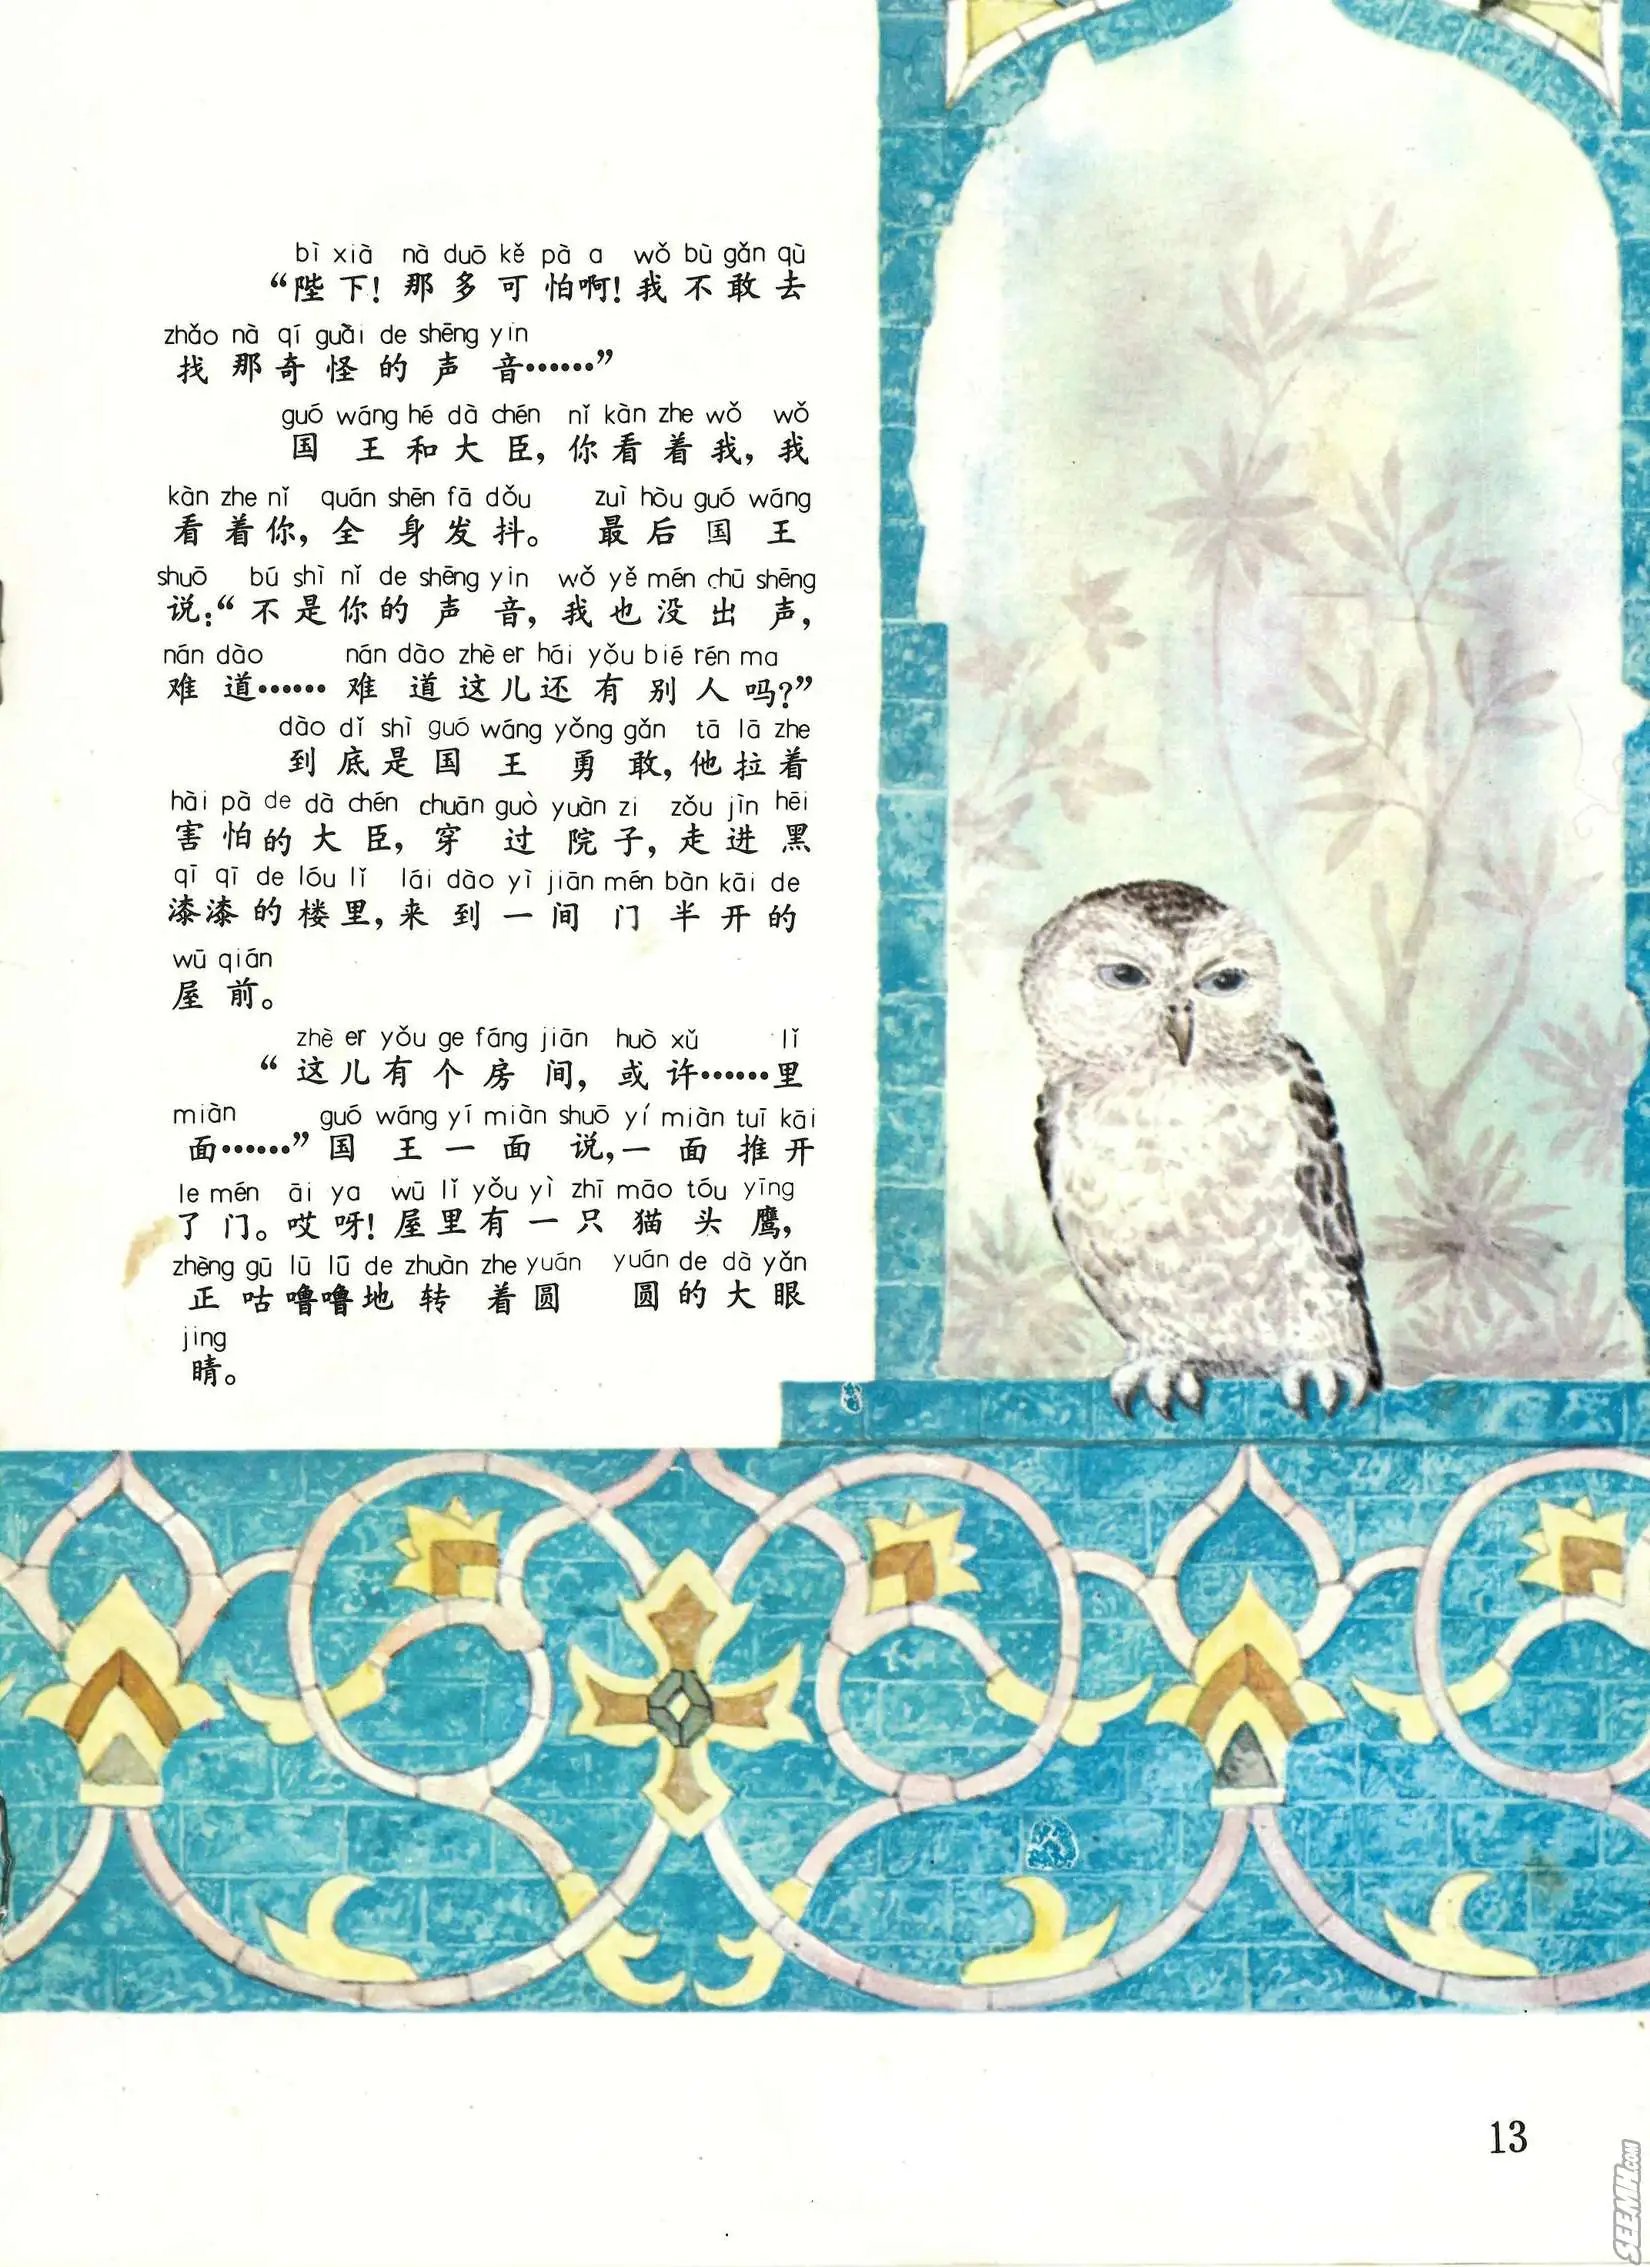 bì xià nà duō kě pà a wǒ bù gǎn qù
“陛下！那多可怕啊！我不敢去
zhǎo nà qí guài de shēng yin
找那奇怪的声音……”
guó wáng hé dà chén nǐ kàn zhe wǒ wǒ
国王和大臣，你看着我，我
kàn zhe nǐ quán shēn fā dǒu zuì hòu guó wáng
看着你，全身发抖。最后国王
shuō bú shì nǐ de shēng yin wǒ yě mén chū shēng
说：“不是你的声音，我也没出声，
nán dào nán dào zhè er hái yǒu bié rén ma
难道……难道这儿还有别人吗？”
dào dǐ shì guó wáng yǒng gǎn tā lā zhe
到底是国王勇敢，他拉着
hài pà de dà chén chuān guò yuàn zi zǒu jìn hēi
害怕的大臣，穿过院子，走进黑
qī qī de lóu lǐ lái dào yì jiān mén bàn kāi de
漆漆的楼里，来到一间门半开的
wū qián
屋前。
zhè er yǒu ge fáng jiān huò xǔ lǐ
“这儿有个房间，或许……里
miàn guó wáng yí miàn shuō yí miàn tuī kāi
面……”国王一面说，一面推开
le mén āi ya wū lǐ yǒu yì zhī māo tóu yīng
了门。哎呀！屋里有一只猫头鹰，
zhèng gū lū lū de zhuàn zhe yuán yuán de dà yǎn
正咕噜噜地转着圆圆的大眼
jing
睛。
13
SEEMH.COM